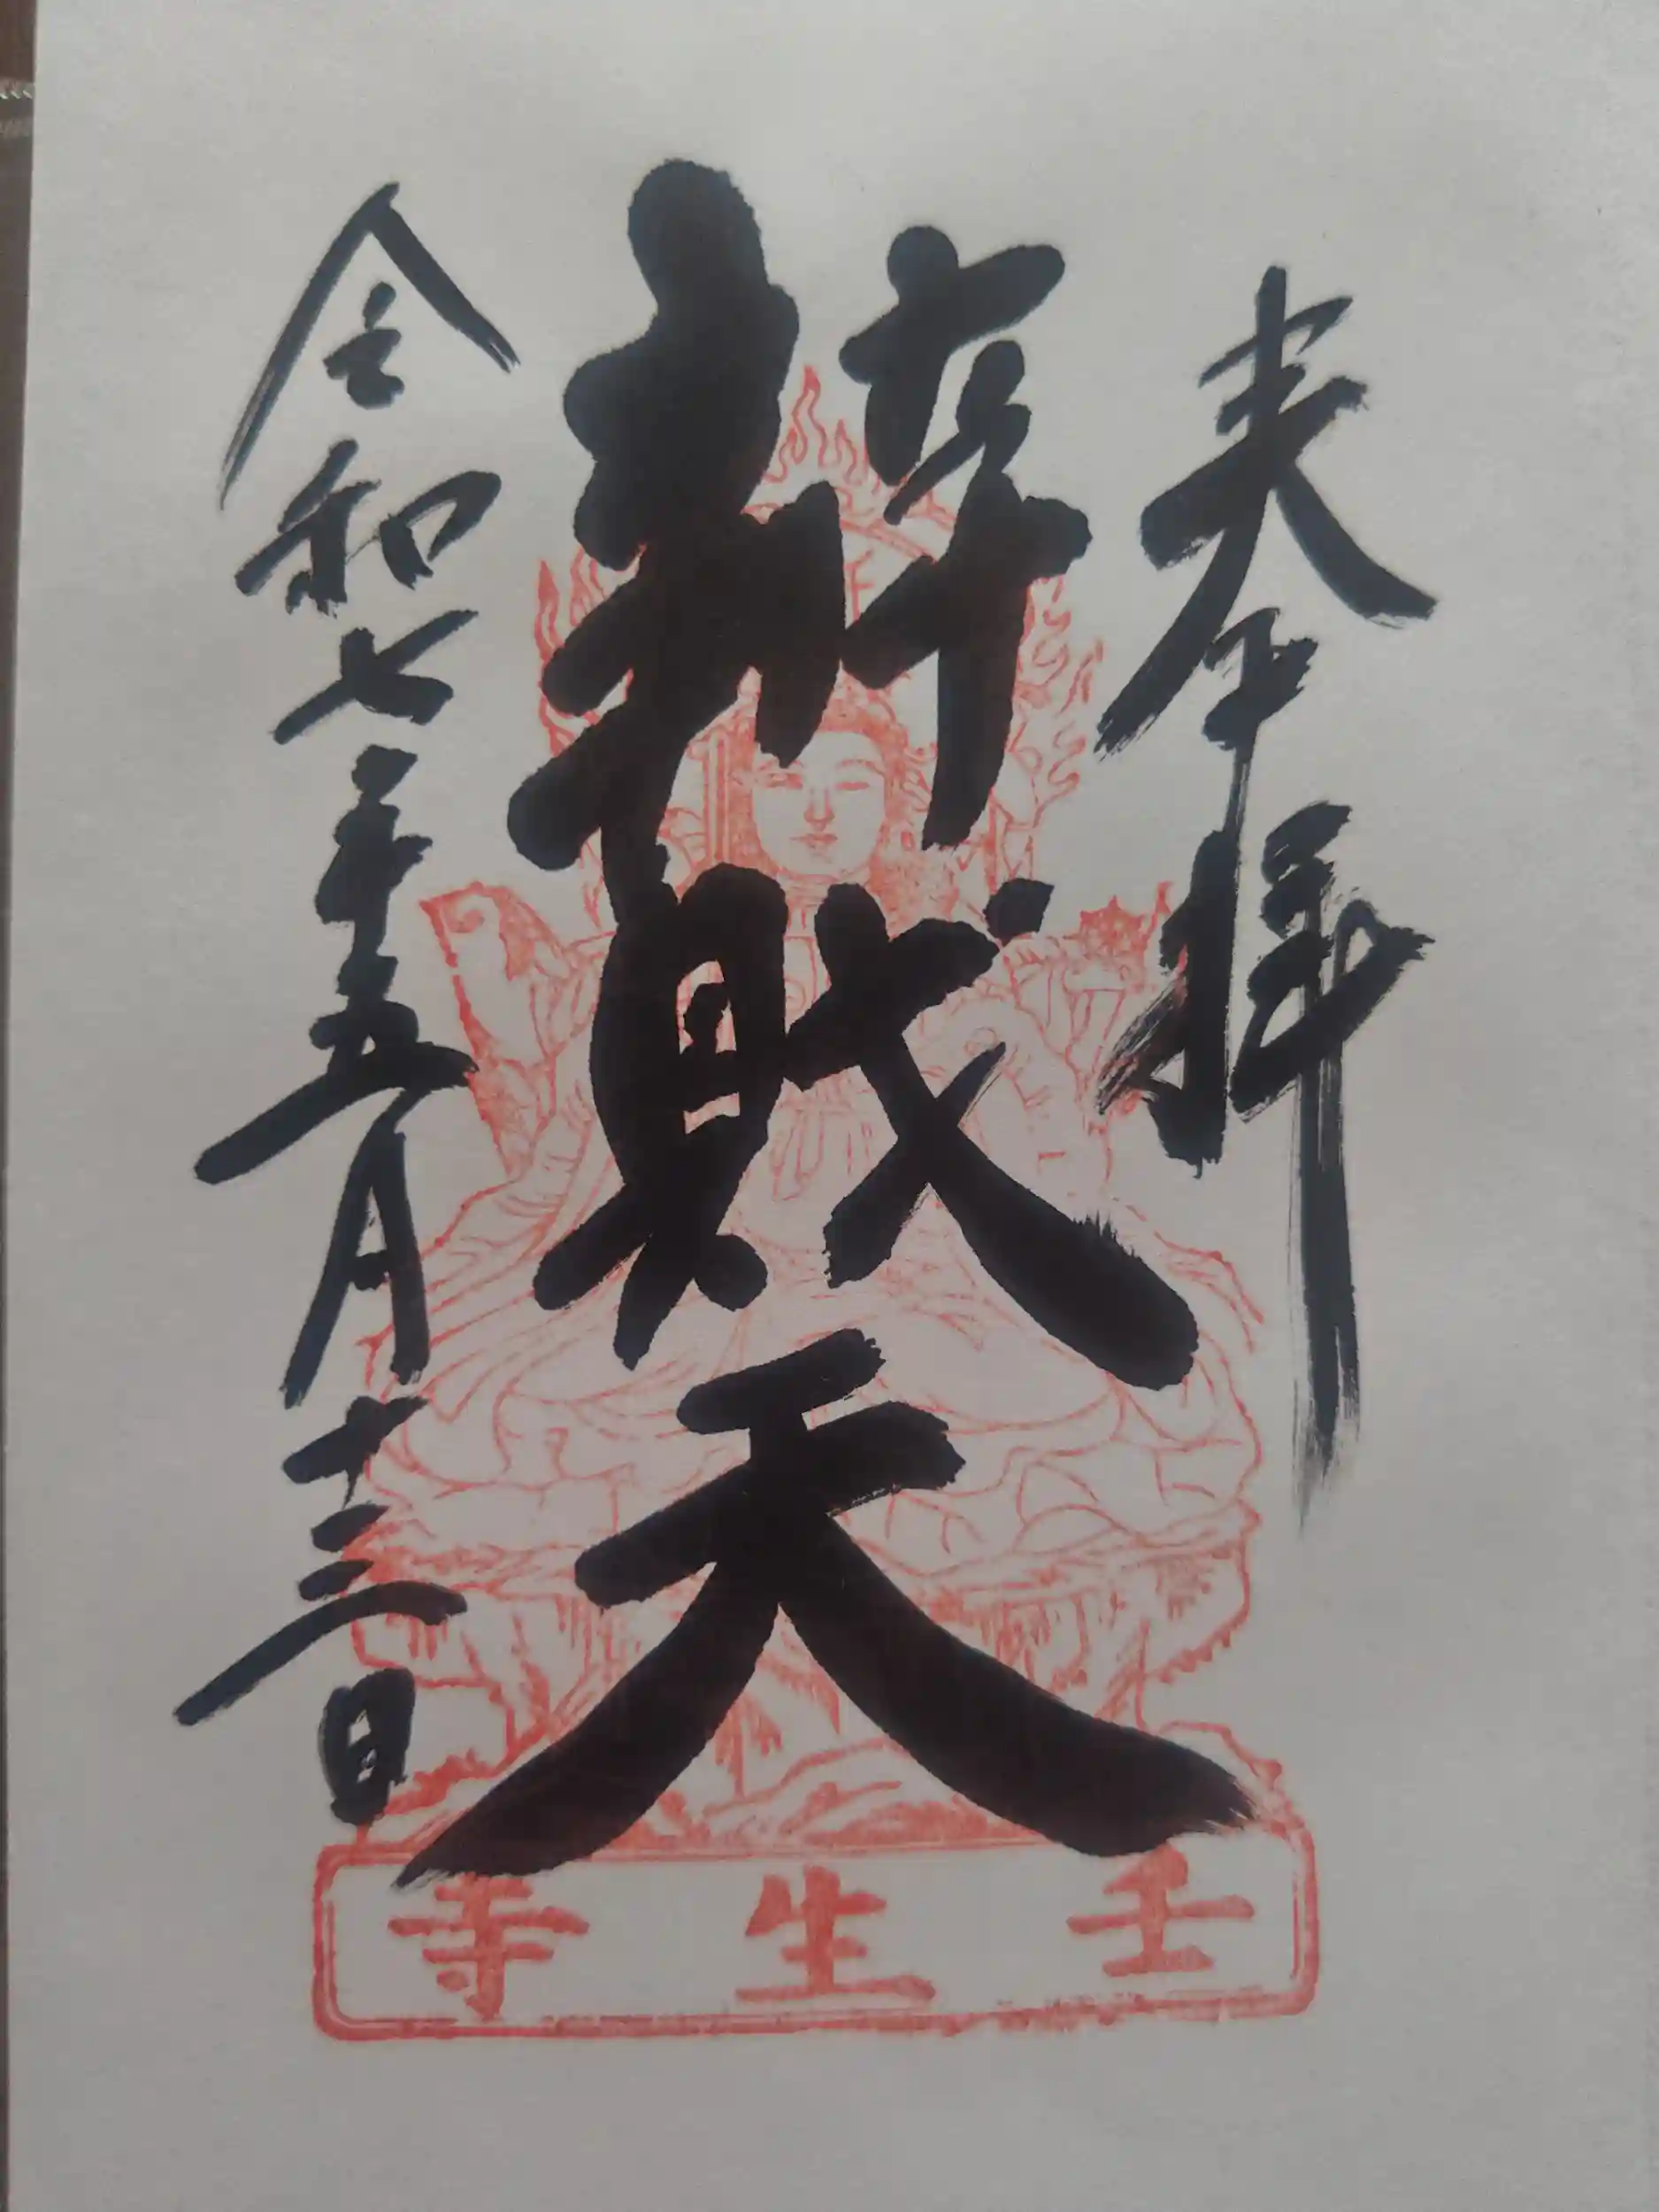 奉拝
辨財天
令和七年五月十三日
壬生寺